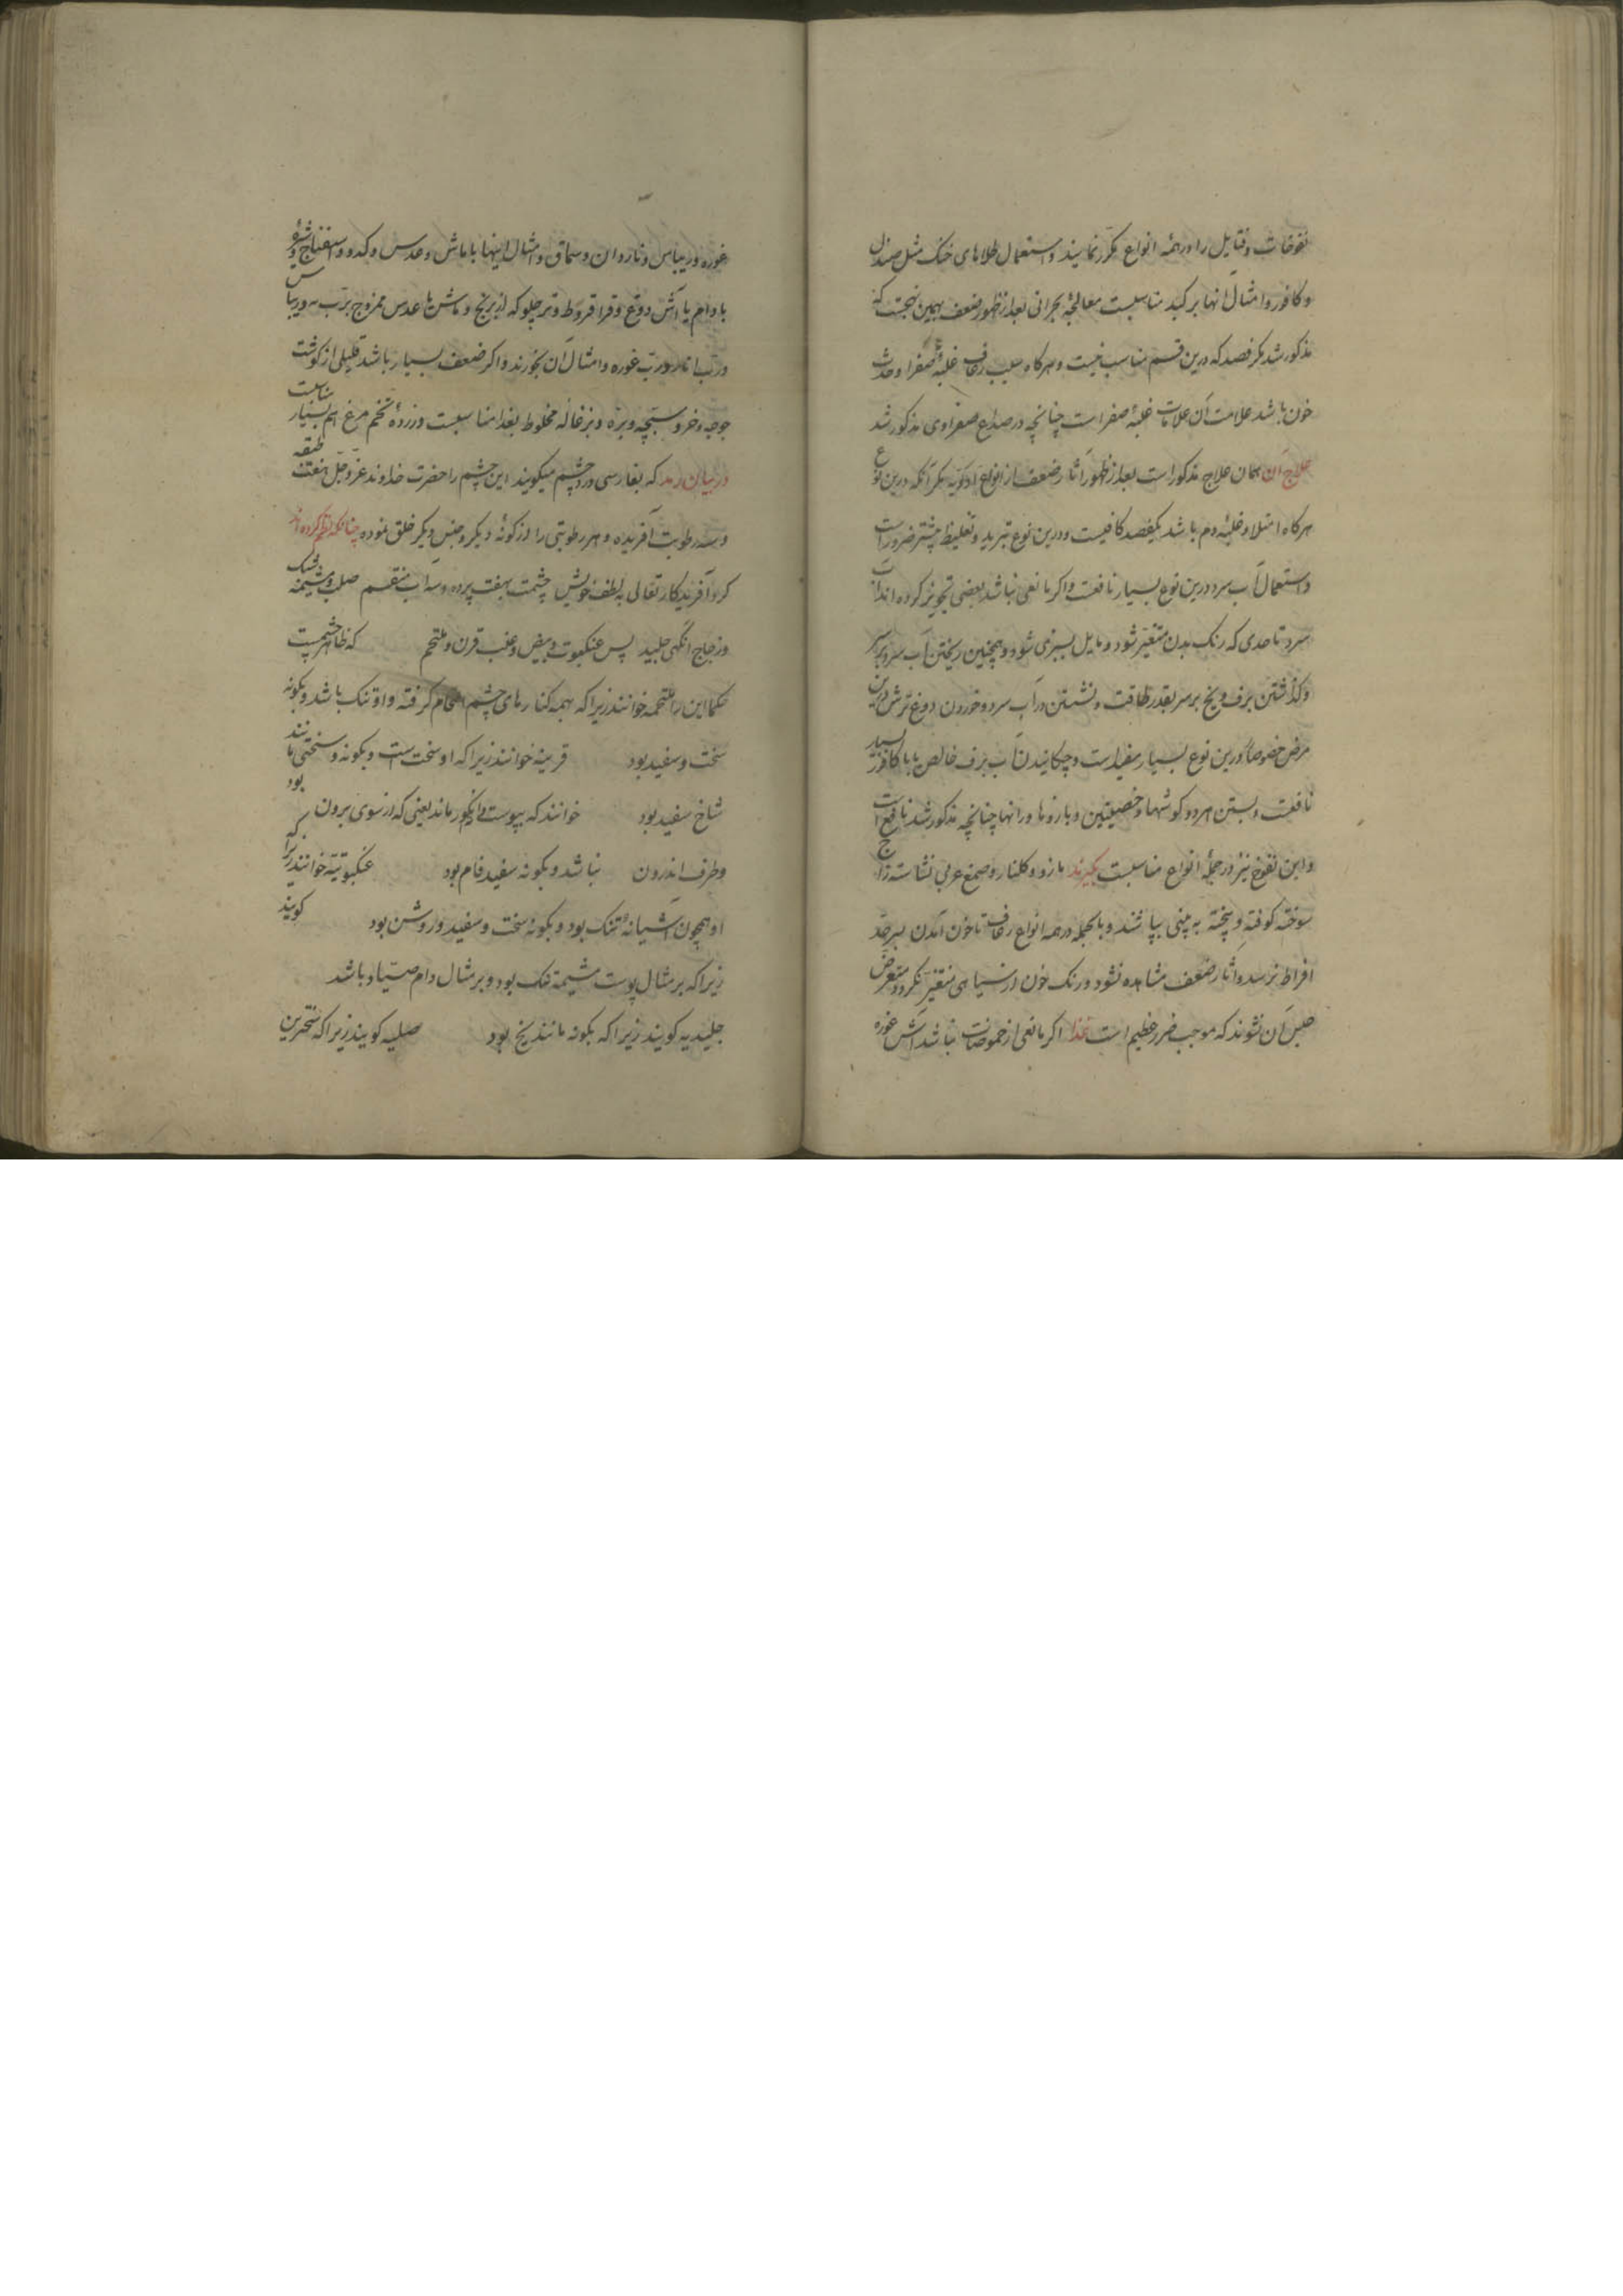 نفوخات و فتایل را در همه انواع مکرر نمایند و استعمال طلاهای خنک مثل صندل
و کافور و امثال انها بر کبد مناسبست معالجهٔ بحرانی بعد از ظهور ضعف بهمین نهجست که
مذکور شد مگر فصد که درین قسم مناسب نیست و هرکاه سبب رعاف غلبهٔ صفرا و حدت
خون باشد علامت آن علامات غلبهٔ صفراست چنانچه در صداع صفراوی مذکور شد
علاج آن همان علاج مذکور است بعد از ظهور آثار ضعف از انواع ادویه مگر آنکه درین نوع
هرکاه امتلا و غلبهٔ دم باشد یکفصد کافیست و درین نوع تبرید و تغلیظ بیشتر ضرور است
و استعمال آب سرد درین نوع بسیار نافعست و اکر مانعی نباشد بعضی تجویز کرده اند آب
سرد تا حدی که رنک بدن متغیر شود و مایل بسبزی شود و همچنین ریختن آب سرد بر سر
و کذاشتن برف و یخ بر سر بقدر طاقت و نشستن در آب سرد و خوردن دوغ ترش درین
مرض خصوصاً درین نوع بسیار مفید است و چکانیدن آب برف خالص یا با کافور بسیار
نافعست و بستن هر دو کوشها و خصیتین و بازوها و رانها چنانچه مذکور شد نافع است
و این نفوخ نیز در جمیع انواع مناسبست بکیرند مازو و کلنار و صمغ عربی نشاسته زاج
سوخته کوفته و پخته به بینی بپاشند و بالجمله در همه انواع رعاف تا خون آمدن بسرحد
افراط نرسد و آثار ضعف مشاهده نشود و رنک خون از سیاهی متغیر نکردد متعرض
حبس آن نشوند که موجب ضرر عظیم است غذا اکر مانعی از حموضات نباشد آش غوره
غوره و ریباس و ناردان و سماق و امثال اینها با ماش و عدس و کدو و اسفناج و شیرهٔ
بادام یا آش دوغ و قراقروط و ترچلو که از برنج و ماش یا عدس ممزوج برب به و ریباس
و رب انار و رب غوره و امثال آن بخورند و اکر ضعف بسیار باشد قلیلی از کوشت
جوجه و خروسبچه و بره و بزغاله مخلوط بغذا مناسبست و زردهٔ تخم مرغ هم بسیار مناسبست
در بیان رمد که بفارسی درد چشم میکویند این چشم را حضرت خداوند عز و جل هفت طبقه
و سه رطوبت آفریده و هر رطوبتی را از کونهٔ دیکر و جنس دیکر خلق نموده چنانکه نظم کرده اند
کرد آفریدکار تعالی بلطف خویش چشمت بهفت پرده و سه آب منقسم صلب و مشیمه شبک
و زجاج آنکهی جلید پس عنکبوت و بیض و عنب قرن و ملتحم که ظاهر چشمیت
حکما این را ملتحمه خوانند زیرا که همه کنارهای چشم التحام کرفته و او تنک باشد و بکونه
سخت و سفید بود قرینه خوانند زیرا که او سخت است و بکونه و سختی مانند
شاخ سفید بود خوانند که بپوست انکور ماند یعنی که از سوی برون بود
و طرف اندرون نباشد و بکونه سفید فام بود عنکبوتیه خوانند زیرا که
او همچون آشیانهٔ تنک بود و بکونه سخت و سفید و روشن بود کویند
زیرا که بر مثال پوست مشیمه تنک بود و بر مثال دام صیاد باشد
جلیدیه کویند زیرا که بکونه مانند یخ بود صلبیه کویند زیرا که سختترین